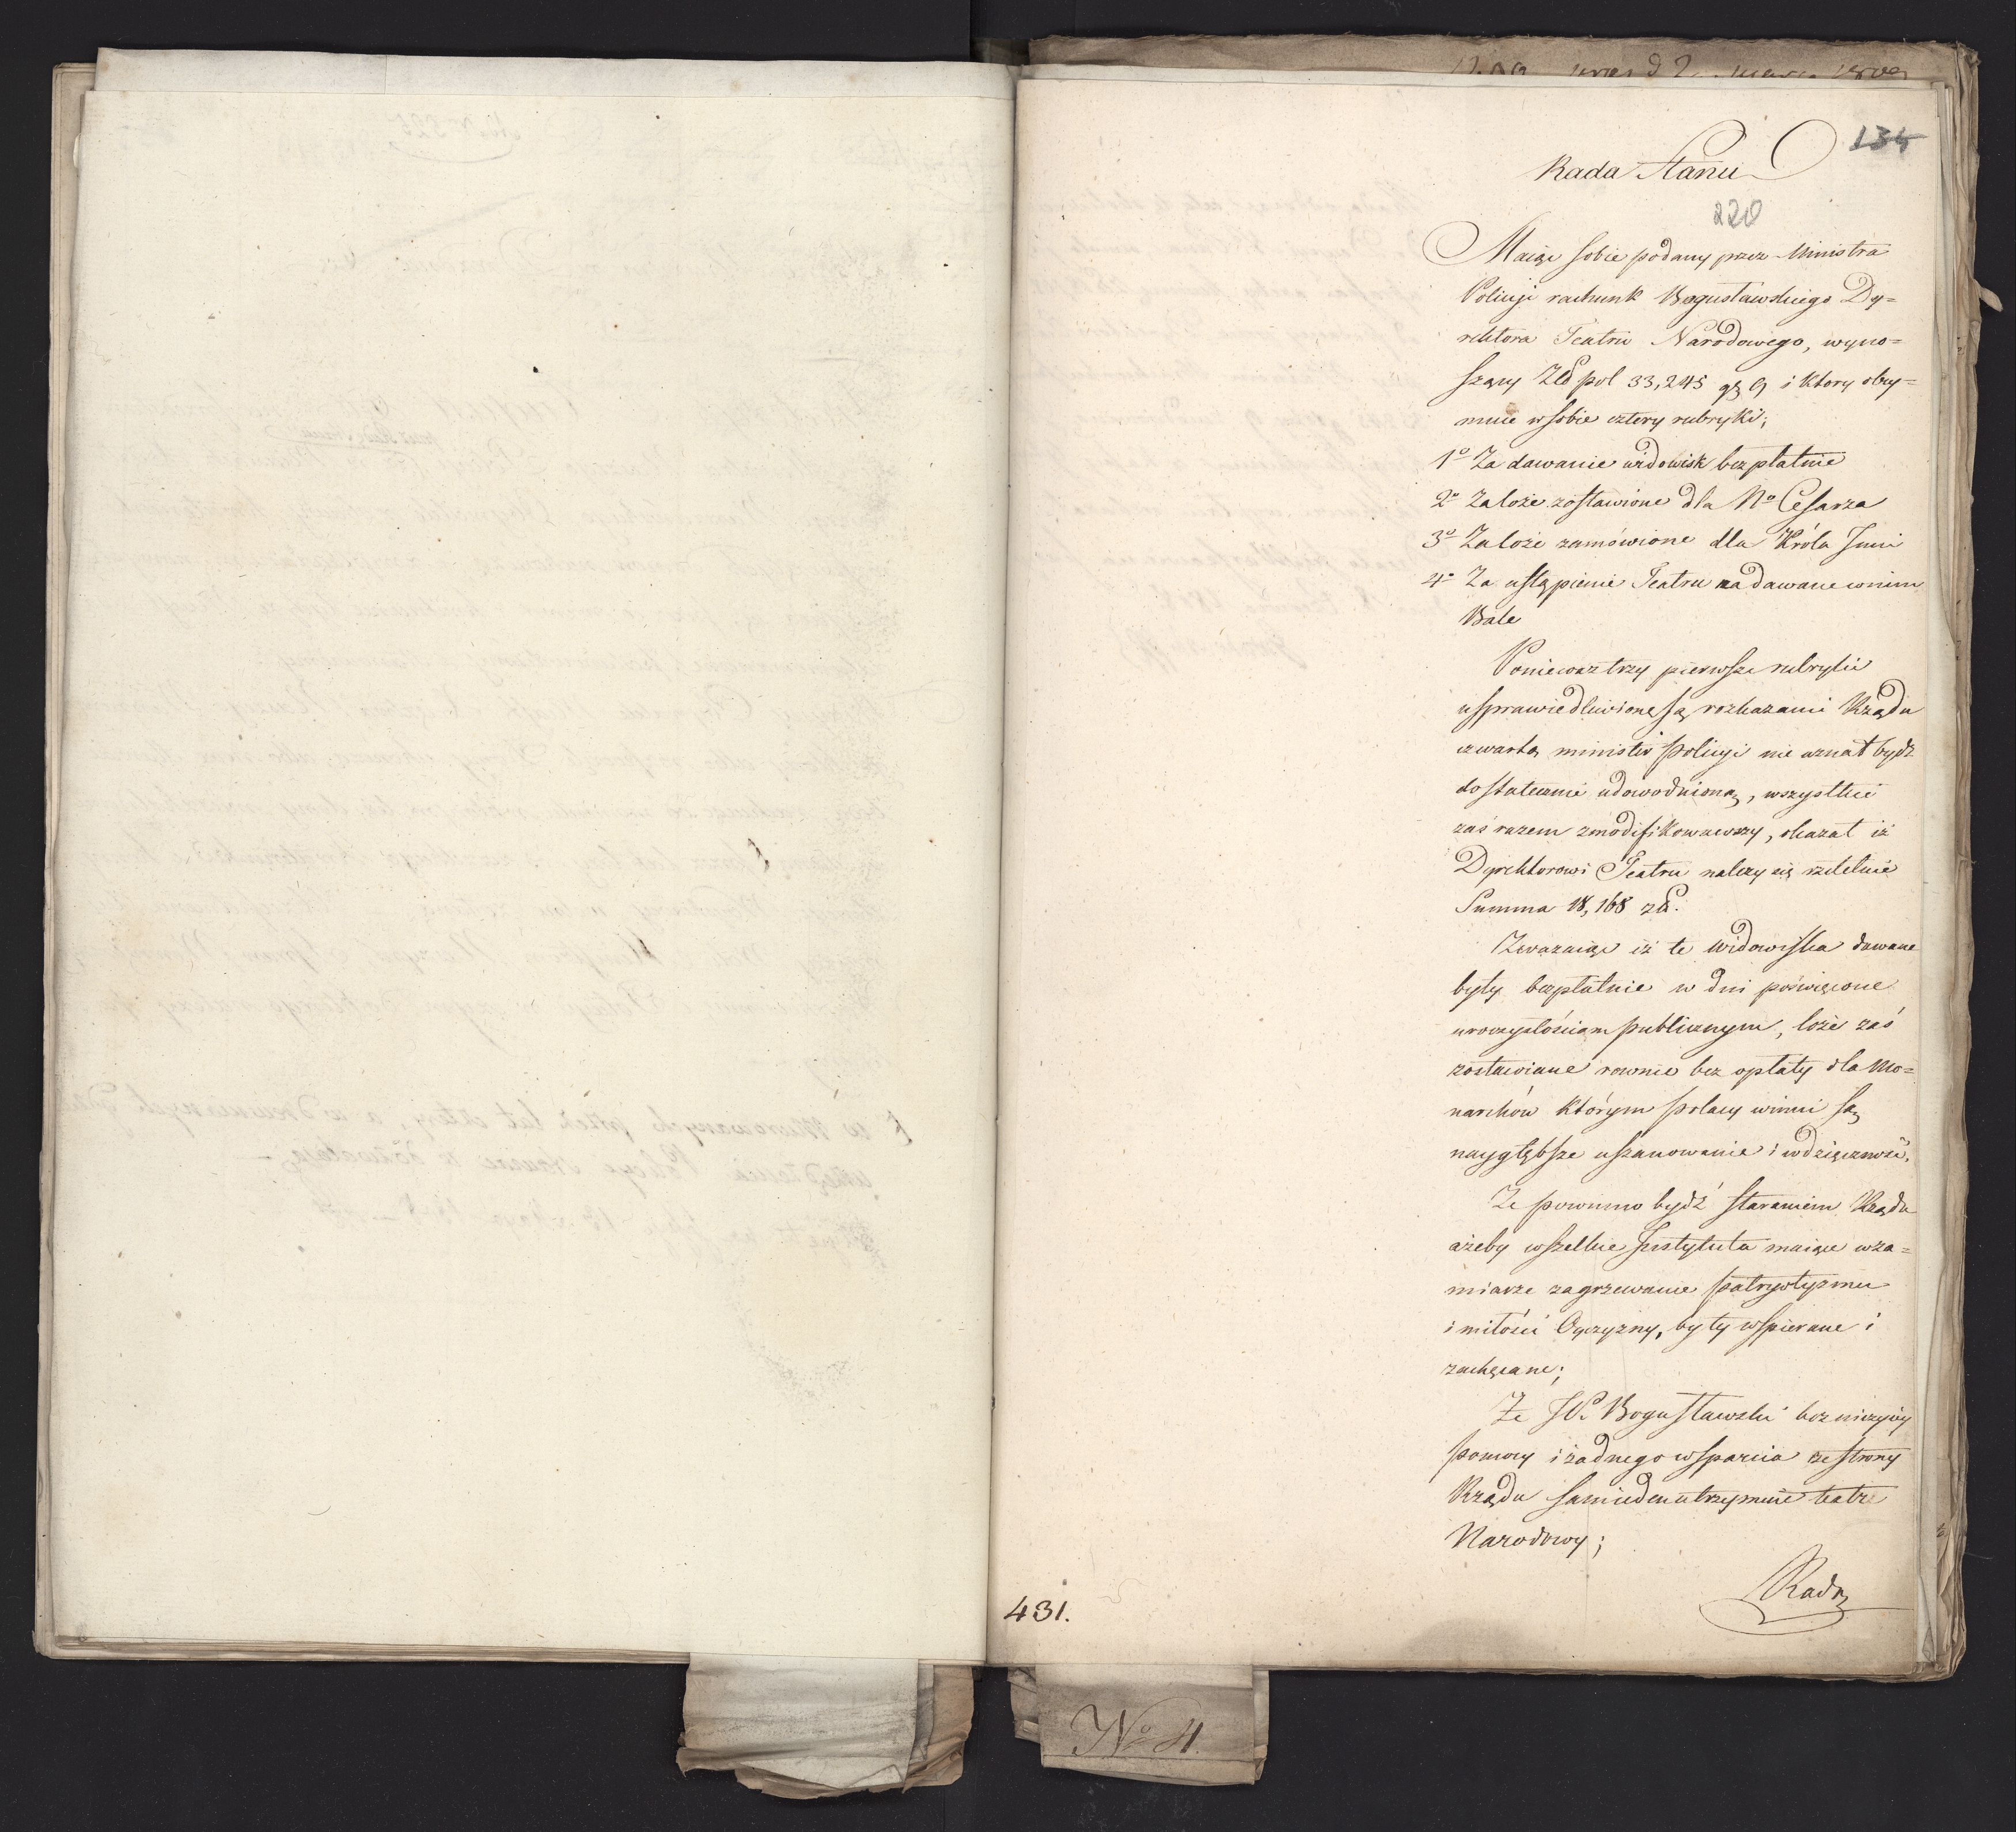 134
Rada Stanu
220
Maiąc sobie podany przez Ministra
Policyi rachunk Bogusławskiego Dy=
rektora Teatru Narodowego, wyno=
szący Złł pol 33,245 gr 9 i ktory obey=
muie w sobie cztery rubryki;
1o Za dawanie widowisk bezpłatnie
2o Za loże zostawione dla No Cesarza
3o Za loże zamówione dla Króla Jmci
4o Za ustąpienie Teatru na dawane w nim
Bale
Poniewaz trzy pierwsze rubryki
usprawiedliwione są rozkazami Rządu
czwartą minister policyi nie uznał bydz
dostatecznie udowodnioną, wszystkie
zaś razem zmodifikowawszy, okazał iż
Dyrektorowi Teatru należy się rzetelnie
Summa 18,168 złł.
Zwazaiąc iż te widowiska dawane
były bezpłatnie w dni poświęcone
uroczystościom publicznym, loże zaś
zostawiane rownie bez opłaty dla Mo=
narchów którym polacy winni są
naygłębsze uszanowanie i wdzięczność,
Ze powinno bydź staraniem Rządu
ażeby wszelkie Instytuta maiące w za=
miarze zagrzewanie patryotyzmu
i miłości Oyczyzny, były wspierane i
zachęcane;
Ze JP. Bogusławski bez niczyiey
pomocy i żadnego wsparcia ze strony
Rządu sam ieden utrzymuie teatr
Narodowy;
Rada
431.
No 4.